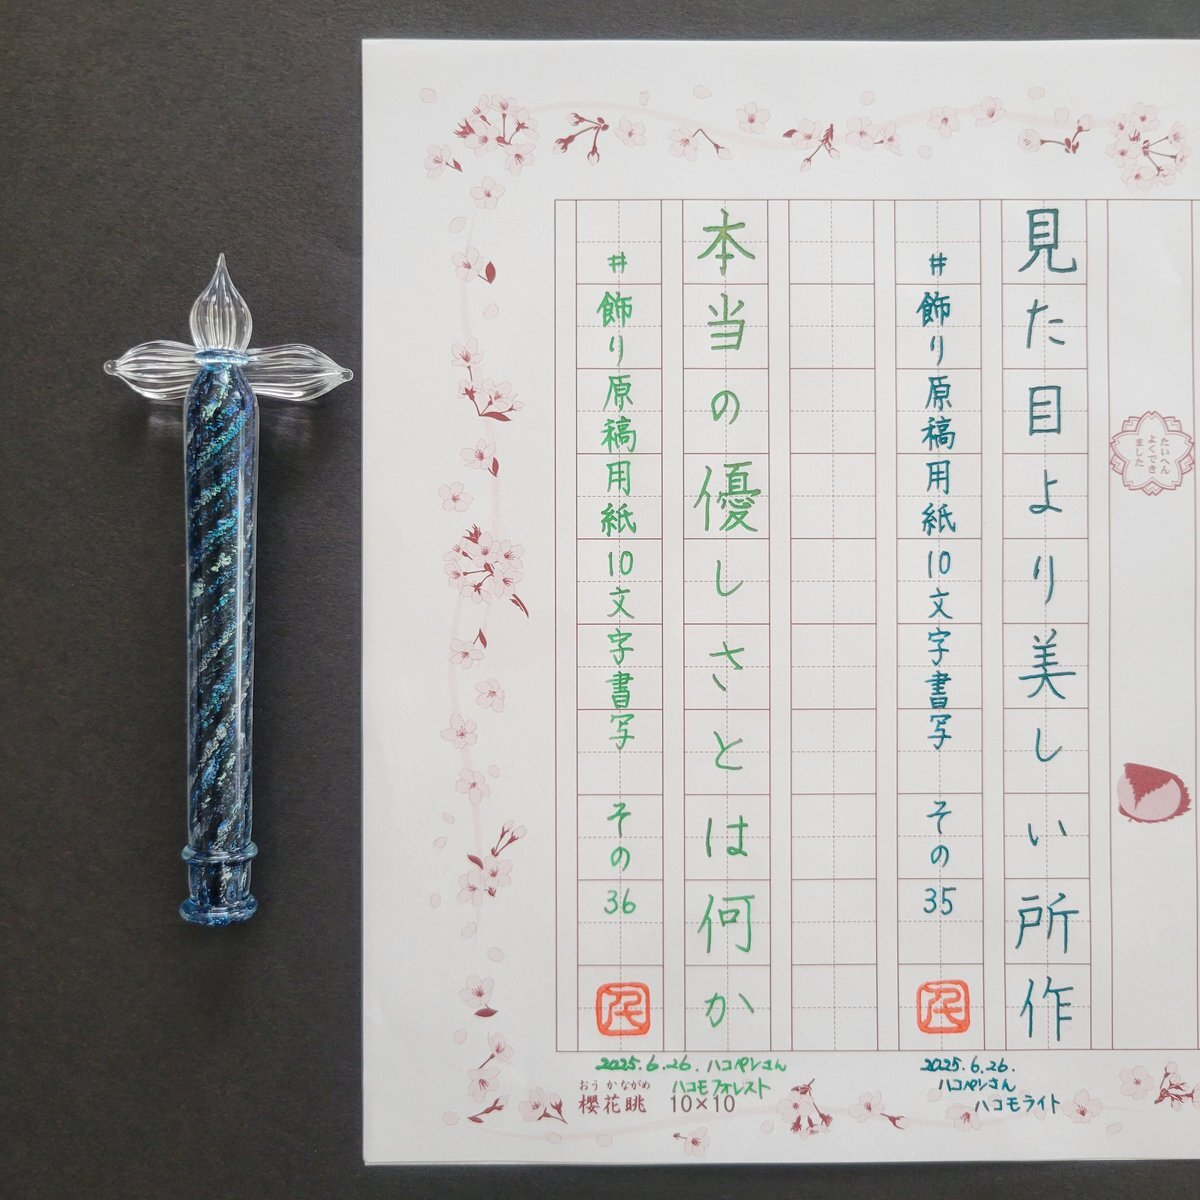 たいへん
よくでき
ました
見た目より美しい所作
#飾り原稿用紙10文字書写 その35
2025.6.26.
ハコペンさん
ハコモライト
本当の優しさとは何か
#飾り原稿用紙10文字書写 その36
2025.6.26. ハコペンさん
ハコモフォレスト
おうかながめ
櫻花眺 10×10